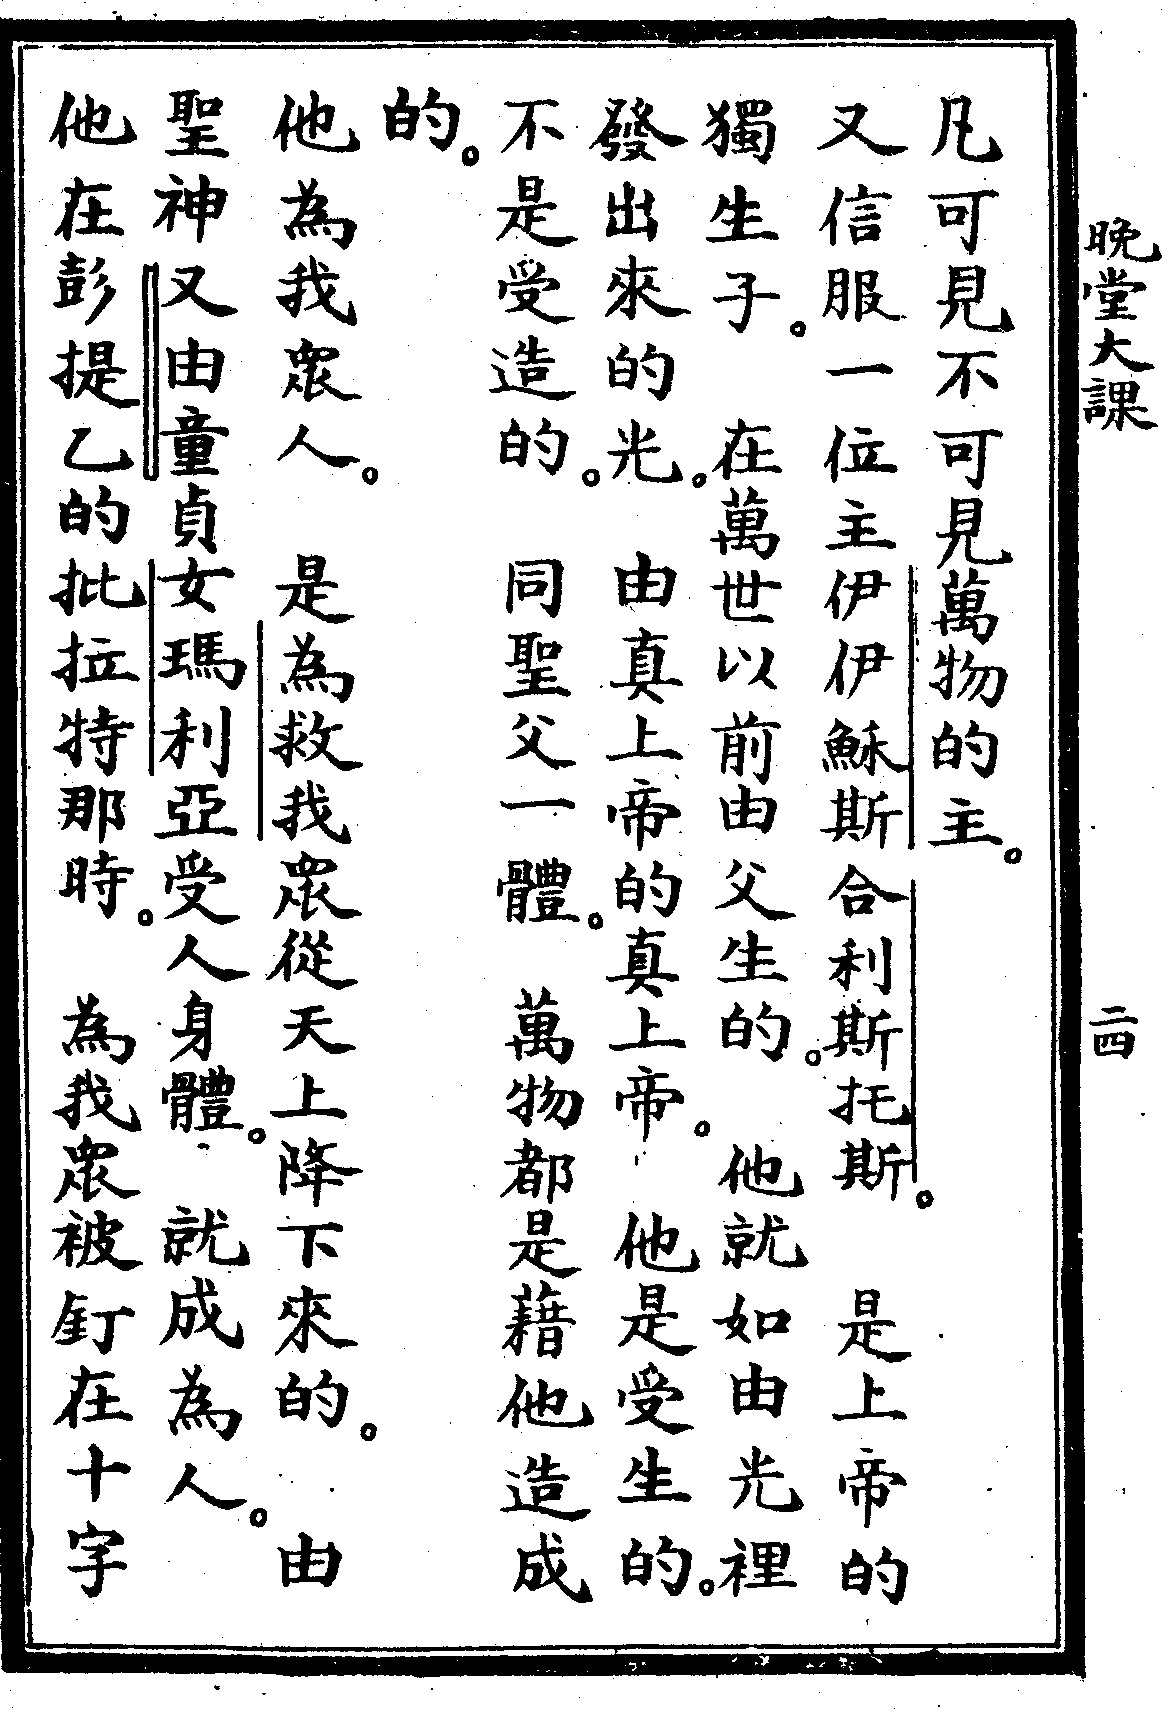 晚堂大課
二四
凡可見不可見萬物的主。
又信服一位主伊伊穌斯合利斯托斯。是上帝的
獨生子。在萬世以前由父生的。他就如由光裡
發出來的光。由真上帝的真上帝。他是受生的。
不是受造的。同聖父一體。萬物都是藉他造成
的。
他為我眾人。是為救我眾從天上降下來的。由
聖神又由童貞女瑪利亞受人身體。就成為人。
他在彭提乙的批拉特那時。為我眾被釘在十字